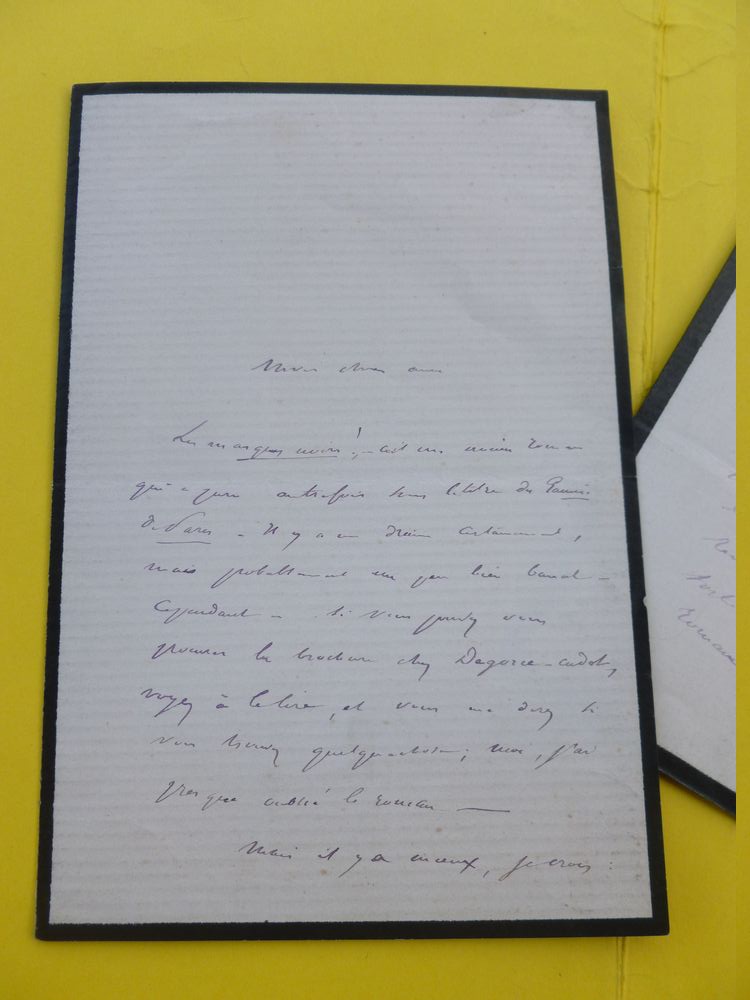 Mon cher ami
Les masques noirs ! - c'est un ancien roman
qui a paru autrefois sous le titre des Gamins
de Paris - Il y a un drame certainement,
mais probablement un peu bien banal -
Cependant - si vous pouvez vous
procurer la brochure chez Degorce-Cadot,
voyez à le lire, et vous me direz si
vous trouvez quelque chose ; moi, j'ai
presque oublié le roman —
Mais il y a mieux, je crois :